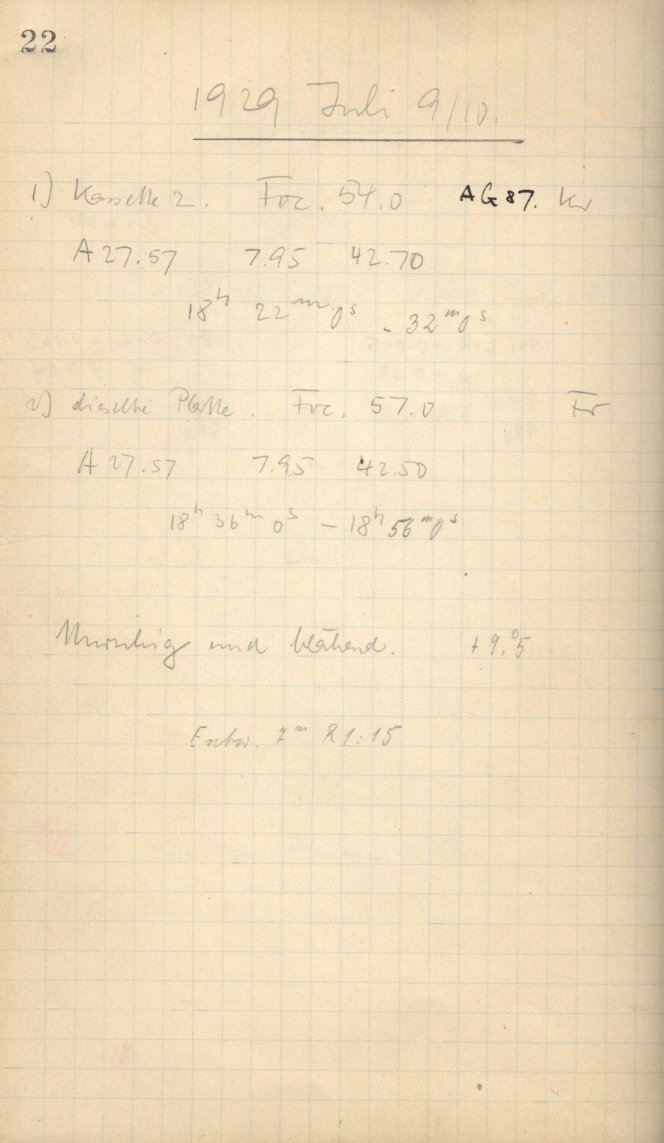 22
1929 Juli 9/10.
1) Kassette 2. Foc. 54.0 AG 87. Kr
A 27.57 7.95 42.70
18h 22m 0s - 32m 0s
2) dieselbe Platte. Foc. 57.0 Fr
A 27.57 7.95 42.50
18h 36m 0s – 18h 56m 0s
Unruhig und blähend. +9.°5
Entw. 7m R 1:15